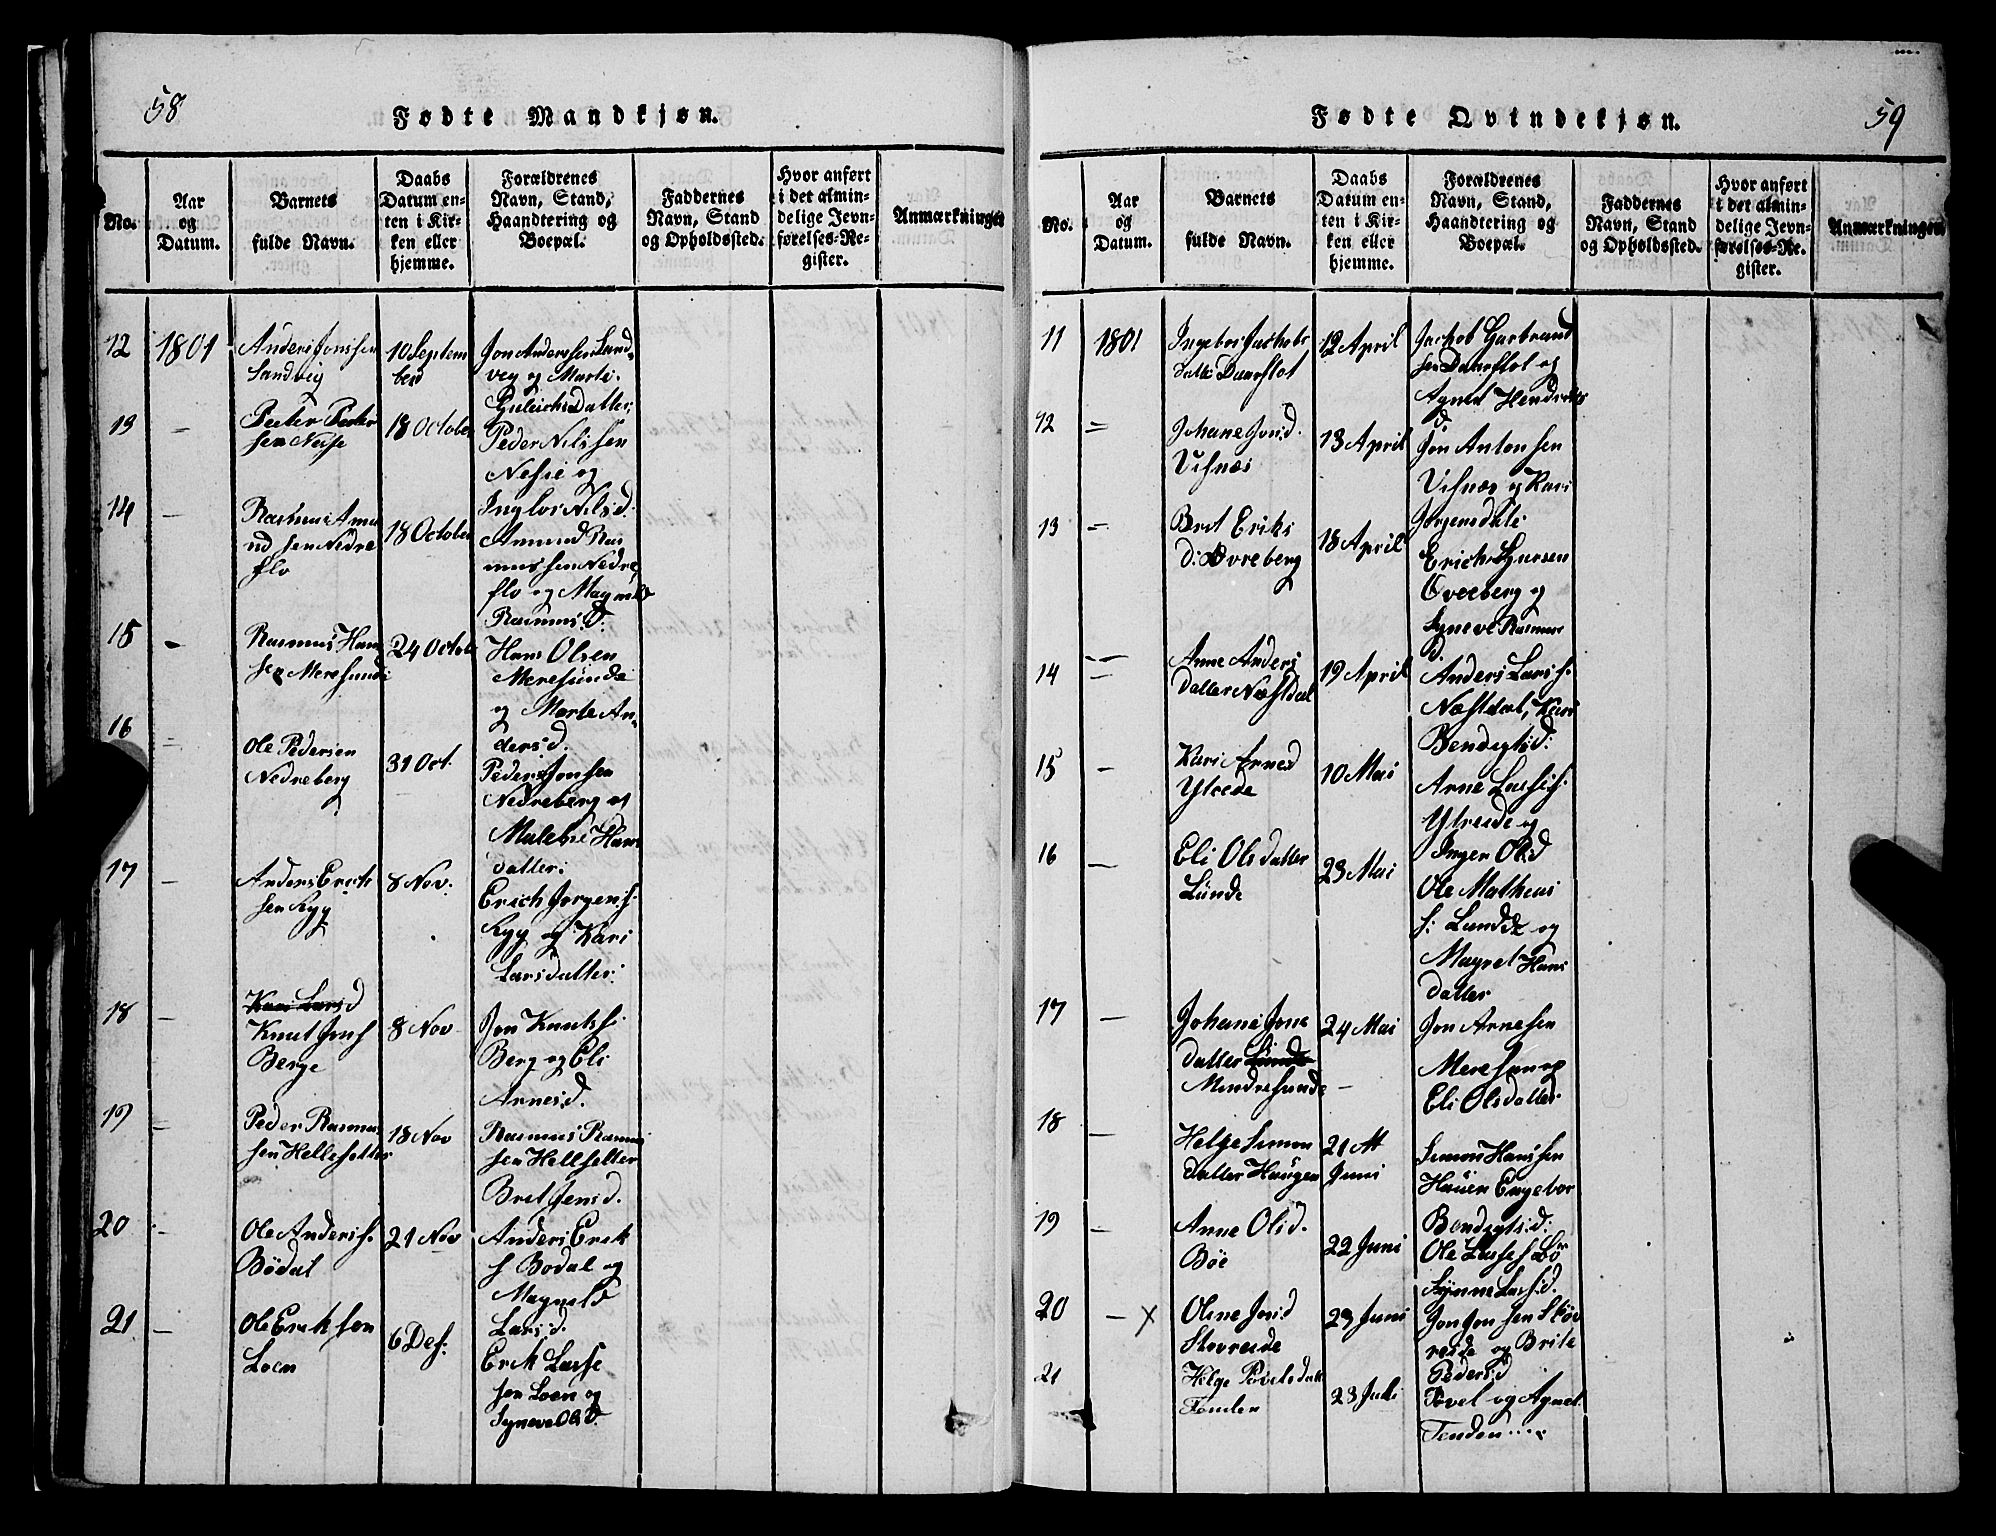 58
Fødte Mandkjøn.
No.
Aar
og
Datum.
Barnets
fulde Navn.
Daabs
Datum en-
ten i Kir-
ken eller
hjemme.
Forældrenes
Navn, Stand,
Haandtering og
Boepæl.
Faddernes
Navn, Stand
og Opholdssted.
Hvor anført
i det almin-
delige Jevn-
førelses-Re-
gister.
Anmærkninger
12
1801
Anders Jonssen
Sandvig
10 Septem
ber
Jon Anderssen Sand-
veg og Marte
Datter:
13
-
Peder Peder
sen
18 October
Peder Nilssen
Nesse og
Ingbor Nilsd:
14
-
Rasmus Amu
nd sen Nedre
flo
18 October
Amund Ras
mussen Nedre
flo og Magnild
Rasmusd:
15
-
Rasmus Hans
sen Meresunde
24 Octob
Hans Olsen
Meresunde
og Marte An-
dersd.
16
Ole Pedersen
Nedreberg
31 Oct.
Peder Jonsen
Nedreberg og
Malene Hans
datter:
17
-
Anders Erich
sen Ryg
8 Nov:
Erich Jørgens:
Ryg og Kari
Larsdatter:
18
-
Kari Larsd
Knut Jons
Berge
8 Nov
Jon Knuts:
Berg og Eli
Arnesd.
19
-
Peder Rasmus
sen Hellesetter
18 Nov
Rasmus Rasmus
sen Hellsetter
Bret Jensd.
20
-
Ole Anders s.
Bödal
21 Nov
Anders Erik
s Bodal og
Magnild
Larsd.
21
-
Ole Eriksson
Loen
6 Des:
Erik Lasse
sen Loen og
Syneve Olsd.
59
Fødte Qvindekjøn.
No.
Aar
og
Datum.
Barnets
fulde Navn.
Daabs
Datum en-
ten i Kir-
ken eller
hjemme.
Forældrenes
Navn, Stand,
Haandtering og
Boepæl.
Faddernes
Navn, Stand
og Opholdssted.
Hvor anført
i det almin-
delige Jevn-
førelses-Re-
gister.
Anmærkninger
11
1801
Ingebor Jachobs
datt: Daarflot
12 April
Jachob Garbrand
sen Daarflot og
Agnet Hendriks
d.
12
Johane Jonsd.
Visnæs
13 April
Jon Antonsen
Visnæs og Kari
Jørgensdatt:
13
Bret Eriks
d: Øvreberg
18 April
Erich
Øvreberg og
Syneve Rasmus
d.
14
Anne Anders
datter Næstdal
19 April
Anders Lars s.
Næstdal, Kari
Bendigtsd:
15
-
Kari Arnesd
Ytreede
10 Mai
Arne Lasses:
Ytreide og
Inger Olsd
16
-
Eli Olsdatter
Lunde
23 Mai
Ole Matheus
s: Lunde og
Magret Hans
datter
17
-
Johane Jons
datter
Mindresunde
24 Mai
Jon Arnesen
Meresun og
Eli Olsdatter
18
-
Helge Simon
datter Haugen
21
Juni
Simon Hanssen
Hauen Engebor
Bendigtsd:
19
-
Anne Olsd.
Böe
22 Juni
Ole Lasses Bö
Synne Lassd.
20
- x
Oline Jonsd
Skovreide
23 Juni
Jon Jonsen Skov
reide og Brite
Pedersd
21
Helge Povels datt
Tenden
23 Juli
Povel og Agnet
Tenden....